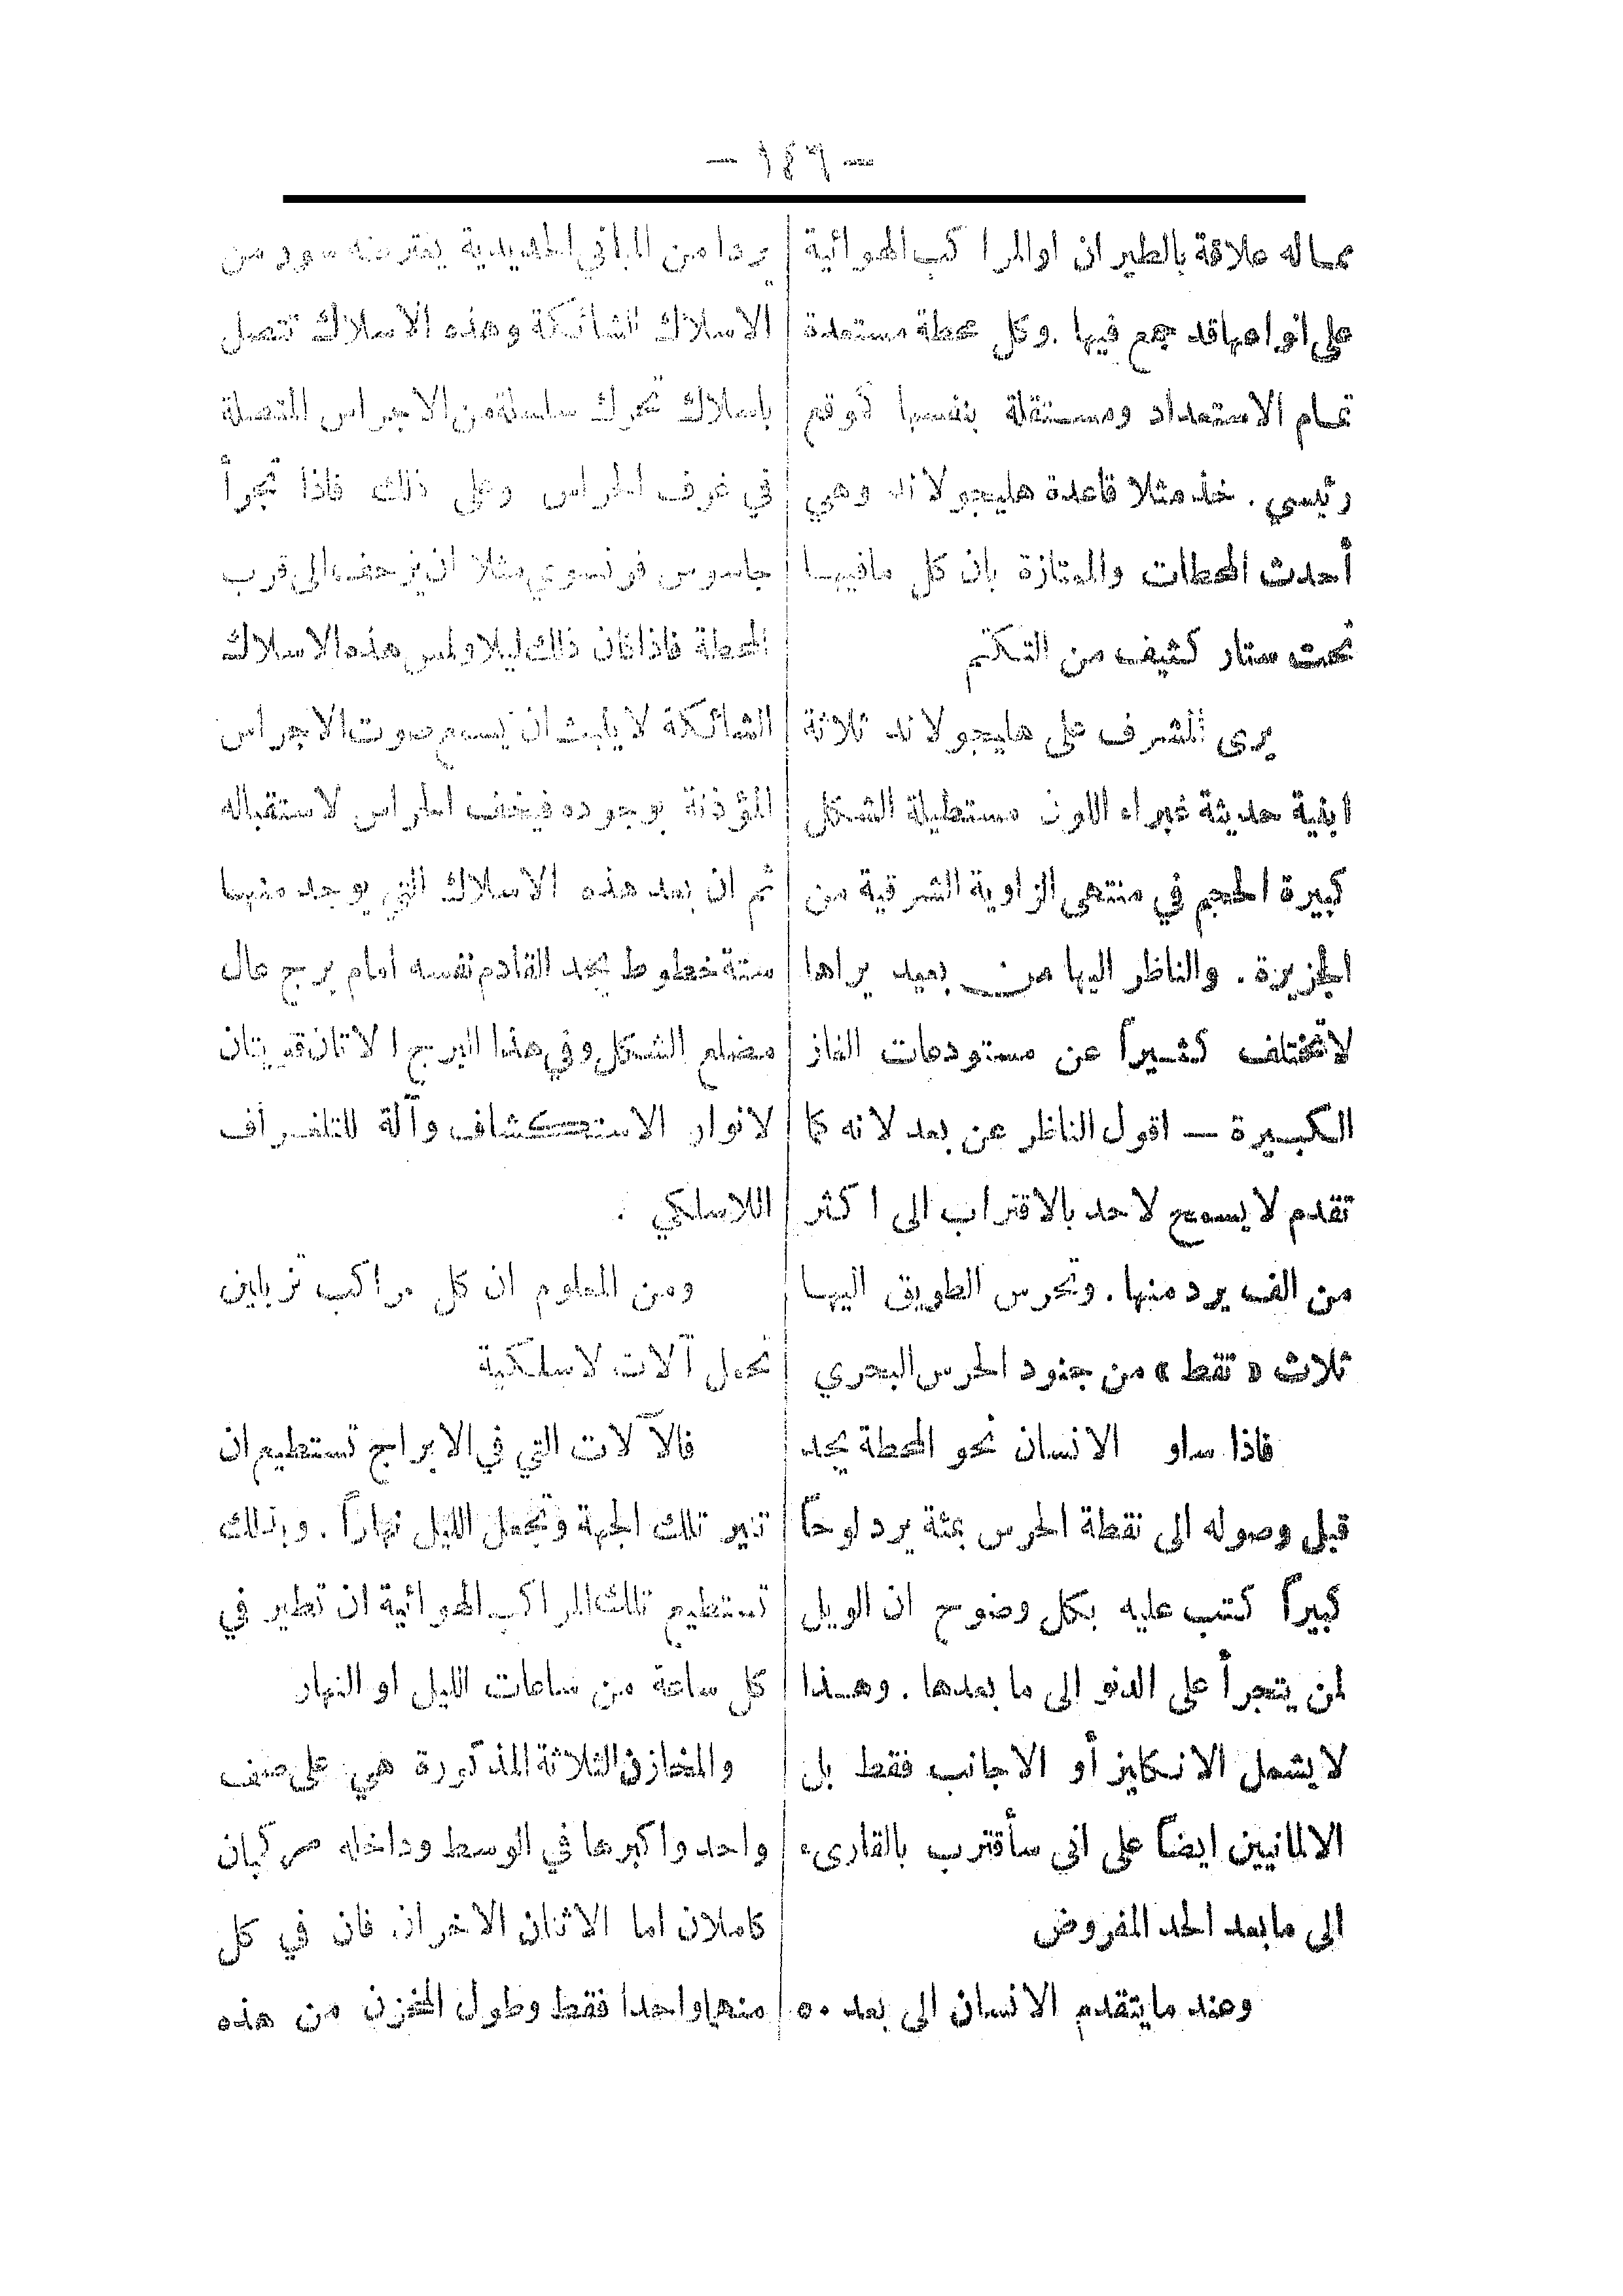 — ١٤٦ —
مماله علاقة بالطيران او المراكب الهوائية
على انواعها قد جمع فيها . وكل محطة مستعدة
تمام الاستعداد ومستقلة بنفسها كموقع
رئيسي . خذ مثلا قاعدة هليجولاند وهي
أحدث المحطات والممتازة بان كل مافيها
تحت ستار كثيف من التكتم
يرى المشرف على هليجولاند ثلاثة
ابنية حديثة غبراء اللون مستطيلة الشكل
كبيرة الحجم في منتهى الزاوية الشرقية من
الجزيرة . والناظر اليها من بعيد يراها
لاتختلف كثيراً عن مستودعات الغاز
الكبيرة — اقول الناظر عن بعد لانه كما
تقدم لا يسمح لاحد بالاقتراب الى اكثر
من الف يرد منها . وتحرس الطريق اليها
ثلاث « نقط » من جنود الحرس البحري
فاذا سار الانسان نحو المحطة يجد
قبل وصوله الى نقطة الحرس بمئة يرد لوحاً
كبيراً كتب عليه بكل وضوح ان الويل
لمن يتجرأ على الدنو الى ما بعدها . وهذا
لا يشمل الانكليز أو الاجانب فقط بل
الالمانيين ايضاً على اني سأقترب بالقارىء
الى مابعد الحد المفروض
وعند مايتقدم الانسان الى بعد ٥٠
يردا من المباني الحديدية يعترضه سور من
الاسلاك الشائكة وهذه الاسلاك تتصل
باسلاك تحرك سلسلة من الاجراس المتصلة
في غرف الحراس وعلى ذلك فاذا تجرأ
جاسوس فرنسوي مثلا ان يزحف الى قرب
المحطة فاذا كان ذلك ليلا ولمس هذه الاسلاك
الشائكة لا يلبث ان يسمع صوت الاجراس
المؤذنة بوجوده فيخف الحراس لاستقباله
ثم ان بعد هذه الاسلاك التي يوجد منها
ستة خطوط يجد القادم نفسه امام برج عال
مضلع الشكل وفي هذا البرج الاتان قويتان
لانوار الاستكشاف وآلة للتلغراف
اللاسلكي .
ومن المعلوم ان كل مراكب تزبلين
تحمل آلات لاسلكية
فالآلات التي في الابراج تستطيع ان
تنير تلك الجهة وتجعل الليل نهاراً . وبذلك
تستطيع تلك المراكب الهوائية ان تطير في
كل ساعة من ساعات الليل او النهار
والمخازن الثلاثة المذكورة هي على صف
واحد واكبرها في الوسط وداخله مركبان
كاملان اما الاثنان الاخران فان في كل
منها واحدا فقط وطول المخزن من هذه